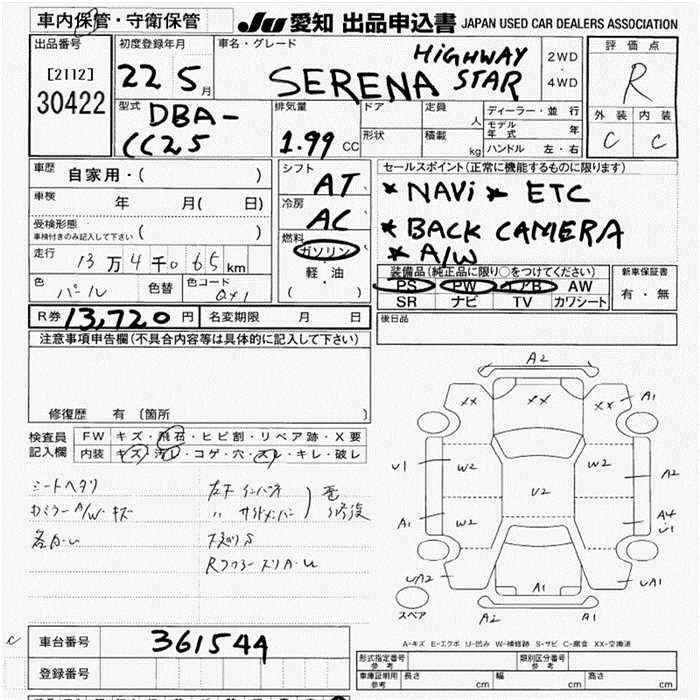 車内保管・守衛保管 JU 愛知 出品申込書 JAPAN USED CAR DEALERS ASSOCIATION
出品番号 初度登録年月 車名・グレード 評価点
[2112] 22 5月 SERENA HiGHWAY STAR 2WD・4WD R
30422
外装 内装
C C
型式 DBA-CC25 排気量 1.99 CC ドア 定員 人 ディーラー・並行
形状 積載 kg モデル年式 年
ハンドル 左・右
車歴 自家用・( ) シフト AT セールスポイント(正常に機能するものに限ります)
車検 年 月( 日) 冷房 AC * NAVi * ETC
受検形態 * BACK CAMERA
車検付きのみ記入して下さい ( ) 燃料 ガソリン * A/W
走行 13万4千065km 軽・油 装備品(純正品に限り○をつけてください) 新車保証書
色 パール 色替 色コード QX1 ( ) PS PW エアB AW 有・無
SR ナビ TV カワシート
R券 13,720円 名変期限 月 日 後日品
注意事項申告欄(不具合内容等は具体的に記入して下さい)
修復歴 有 〔箇所 〕
検査員 FW キズ・飛石・ヒビ割・リペア跡・X要
記入欄 内装 キズ・汚レ・コゲ・穴・スレ・キレ・破レ
シートヘタリ
A2
XX XX XX A1
U1 W2 W2 A2
U2
A1 W2 A4 U1
UA2 A1 UA1
スペア A2 A1
A-キズ E-エクボ U-凹み W-補修跡 S-サビ C-腐食 XX-交換済
車台番号 361544
登録番号
形式指定番号 参考 類別区分番号 参考
車庫証明用 参考 長さ cm 幅 cm 高さ cm